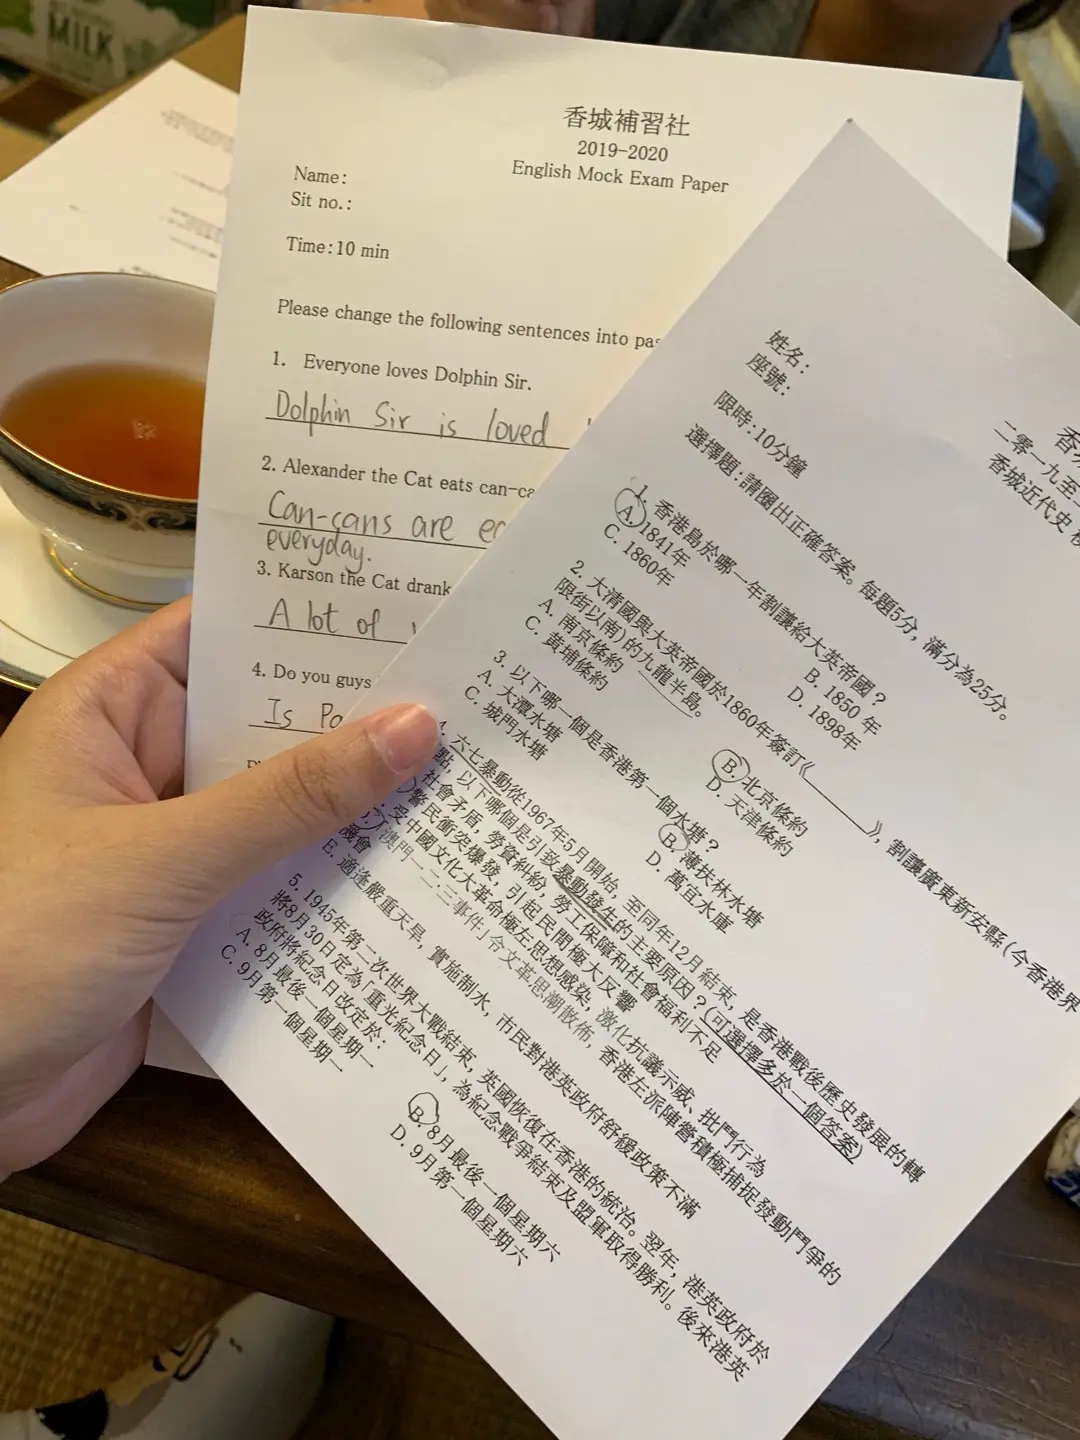 MILK
香城補習社
2019-2020
English Mock Exam Paper
Name:
Sit no.:
Time:10 min
Please change the following sentences into
1. Everyone loves Dolphin Sir.
Dolphin Sir is loved
2. Alexander the Cat eats
Can-cans are
everyday.
3. Karson the Cat drank
A lot of
4. Do you guys
Is
二零一九至
香城近代史
姓名:
座號:
限時:10分鐘
選擇題:請圈出正確答案。每題5分,滿分為25分。
1. 香港島於哪一年割讓給大英帝國?
A. 1841年 B. 1850 年
C. 1860年 D. 1898年
2. 大清國與大英帝國於1860年簽訂《________》,割讓廣東新安縣(今香港界
限街以南)的九龍半島。
A. 南京條約 B. 北京條約
C. 黃埔條約 D. 天津條約
3. 以下哪一個是香港第一個水塘?
A. 大潭水塘 B. 薄扶林水塘
C. 城門水塘 D. 萬宜水庫
4. 六七暴動從1967年5月開始,至同年12月結束,是香港戰後歷史發展的轉
點,以下哪個是引致暴動發生的主要原因?(可選擇多於一個答案)
社會矛盾,勞資糾紛,勞工保障和社會福利不足
警民衝突爆發,引起民間極大反響
受中國文化大革命極左思想感染,激化抗議示威、批鬥行為
D. 「澳門一二·三事件」令文革思潮散佈,香港左派陣營積極捕捉發動鬥爭的
機會
E. 適逢嚴重天旱,實施制水,市民對港英政府舒緩政策不滿
5. 1945年第二次世界大戰結束,英國恢復在香港的統治。翌年,港英政府於
將8月30日定為「重光紀念日」,為紀念戰爭結束及盟軍取得勝利。後來港英
政府將紀念日改定於:
A. 8月最後一個星期一 B. 8月最後一個星期六
C. 9月第一個星期一 D. 9月第一個星期六